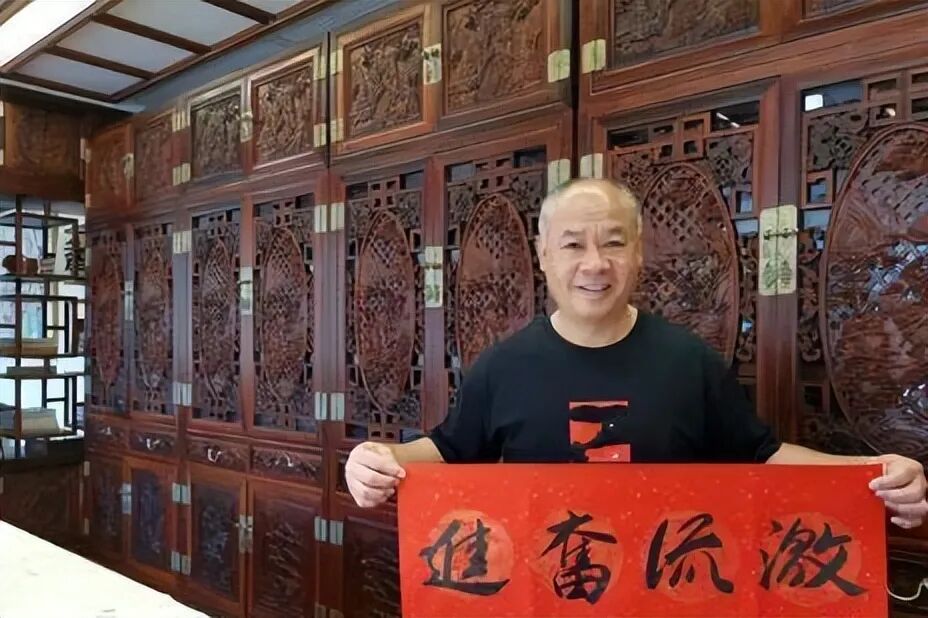 激流奮進